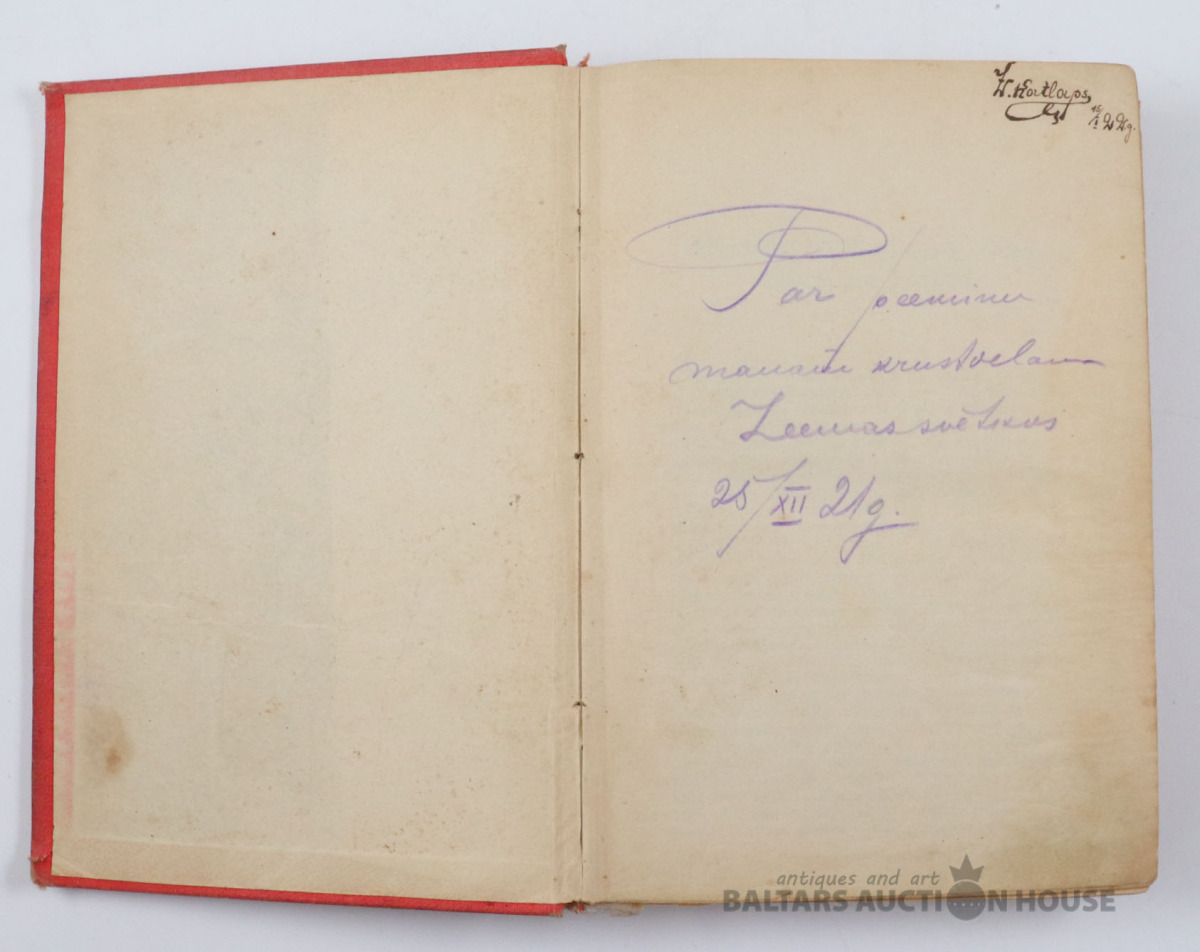 W. Katlaps
15/I 22g.
Par peeminu
manam krustdelam
Zeemas svētkos
25/XII 21g.
antiques and art
BALTARS AUCTION HOUSE